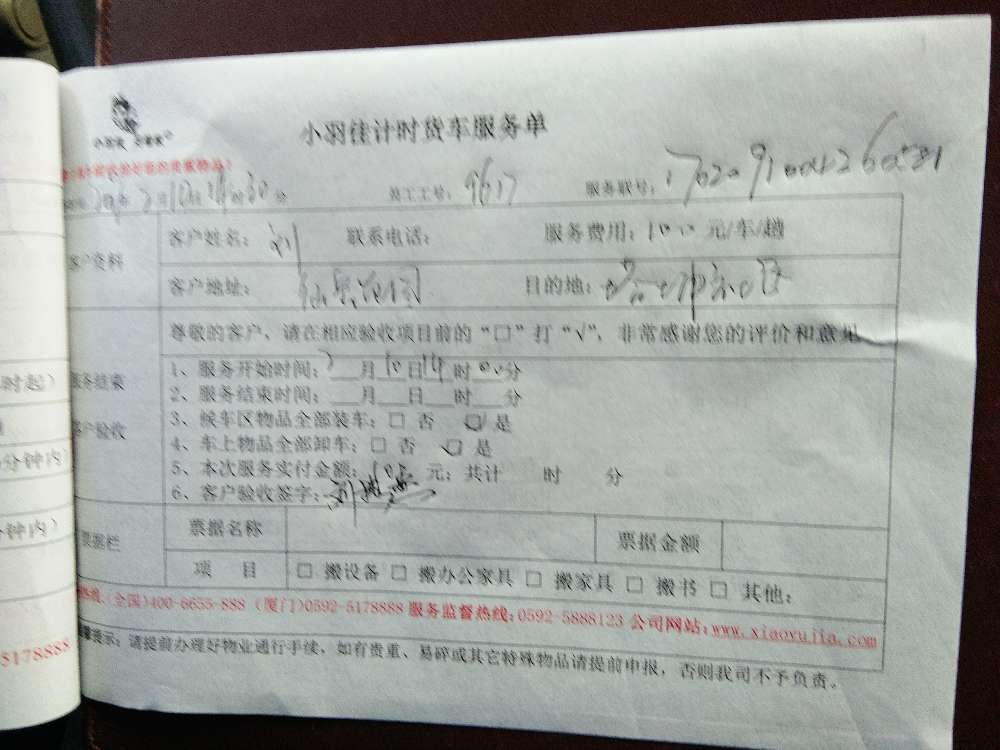 小羽佳计时货车服务单
月10日14时30分 员工工号：9617 服务联号：
客户资料
客户姓名：刘 联系电话： 服务费用：100元/车/趟
客户地址： 目的地：
尊敬的客户、请在相应验收项目前的“□”打“√”，非常感谢您的评价和意见
服务结束
客户验收
1、服务开始时间：7月10日14时00分
2、服务结束时间：___月___日___时___分
3、候车区物品全部装车：□ 否 ☑ 是
4、车上物品全部卸车：□ 否 ☑ 是
5、本次服务实付金额：100元；共计 时 分
6、客户验收签字：刘
票据栏
票据名称 票据金额
项 目 □ 搬设备 □ 搬办公家具 □ 搬家具 □ 搬书 □ 其他：
热线：(全国)400-6655-888 (厦门)0592-5178888 服务监督热线：0592-5888123 公司网站：www.xiaoyujia.com
提示：请提前办理好物业通行手续，如有贵重、易碎或其它特殊物品请提前申报，否则我司不予负责。
时起）
分钟内
钟内）
5178888